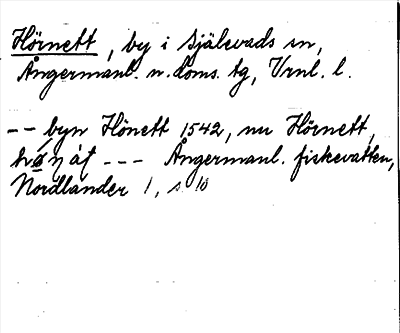 Hörnett, by i Själevads sn,
Ångermanl. n. doms. tg, Vrnl. l.
-- byn Hönett 1542, nu Hörnett,
--- Ångermanl. fiskevatten,
Nordlander 1, s 10